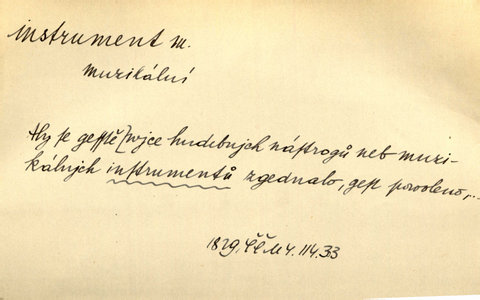 instrument m.
muzikální
Aby se gesstě [wjce hudebných nástrogů neb muzi-
kálných instrumentů zgednalo, gest powoleno,...
1829, ČČM 4. 114.33